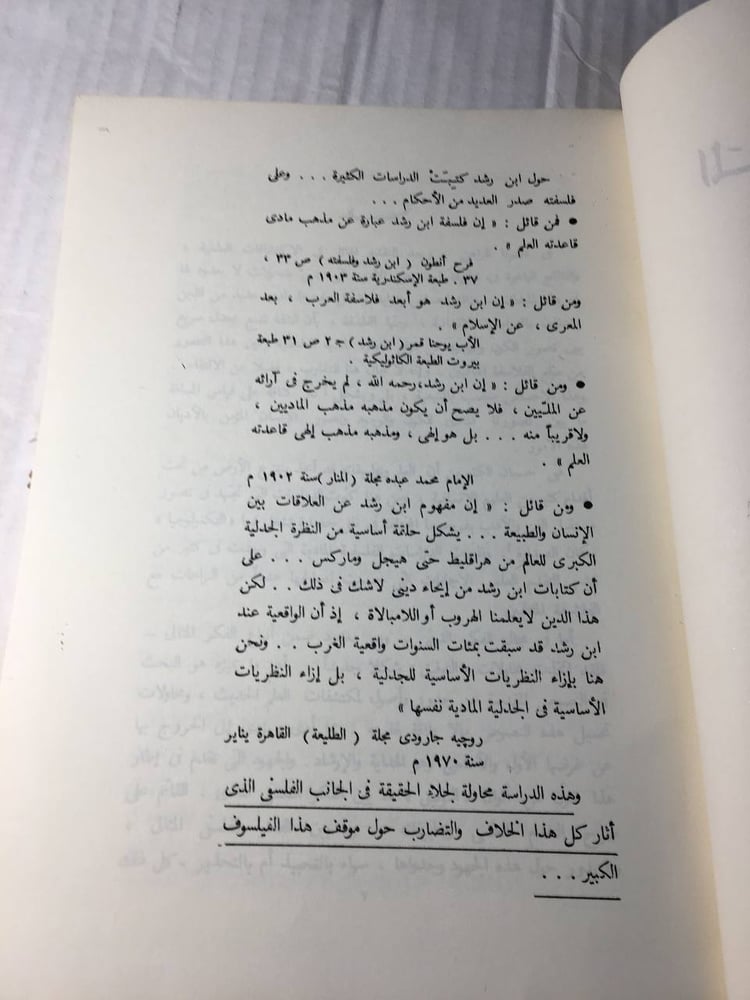 حول ابن رشد كتبت الدراسات الكثيرة . . . وعلى
فلسفته صدر العديد من الأحكام . . .
• فمن قائل : « إن فلسفة ابن رشد عبارة عن مذهب مادى
قاعدته العلم » .
فرح أنطون ( ابن رشد وفلسفته ) ص ٣٣ ،
٣٧ . طبعة الإسكندرية سنة ١٩٠٣ م
ومن قائل : « إن ابن رشد هو أبعد فلاسفة العرب ، بعد
المعرى ، عن الإسلام » .
الأب يوحنا قمر (ابن رشد) جـ ٢ ص ٣١ طبعة
بيروت الطبعة الكاثوليكية .
• ومن قائل : « إن ابن رشد،رحمه الله ، لم يخرج فى آرائه
عن المليّين ، فلا يصح أن يكون مذهبه مذهب الماديين ،
ولاقريباً منه . . . بل هو إلهى ، ومذهبه مذهب إلهى قاعدته
العلم » .
الإمام محمد عبده مجلة (المنار)سنة ١٩٠٢ م
• ومن قائل : « إن مفهوم ابن رشد عن العلاقات بين
الإنسان والطبيعة . . . يشكل حلقة أساسية من النظرة الجدلية
الكبرى للعالم من هراقليط حتى هيجل وماركس . . . على
أن كتابات ابن رشد من إيحاء دينى لاشك فى ذلك . . لكن
هذا الدين لايعلمنا الهروب أو اللامبالاة ، إذ أن الواقعية عند
ابن رشد قد سبقت بمئات السنوات واقعية الغرب . . ونحن
هنا بإزاء النظريات الأساسية للجدلية ، بل إزاء النظريات
الأساسية فى الجدلية المادية نفسها »
روجيه جارودى مجلة (الطليعة) القاهرة يناير
سنة ١٩٧٠ م
وهذه الدراسة محاولة لجلاء الحقيقة فى الجانب الفلسفى الذى
أثار كل هذا الخلاف والتضارب حول موقف هذا الفيلسوف
الكبير . . .